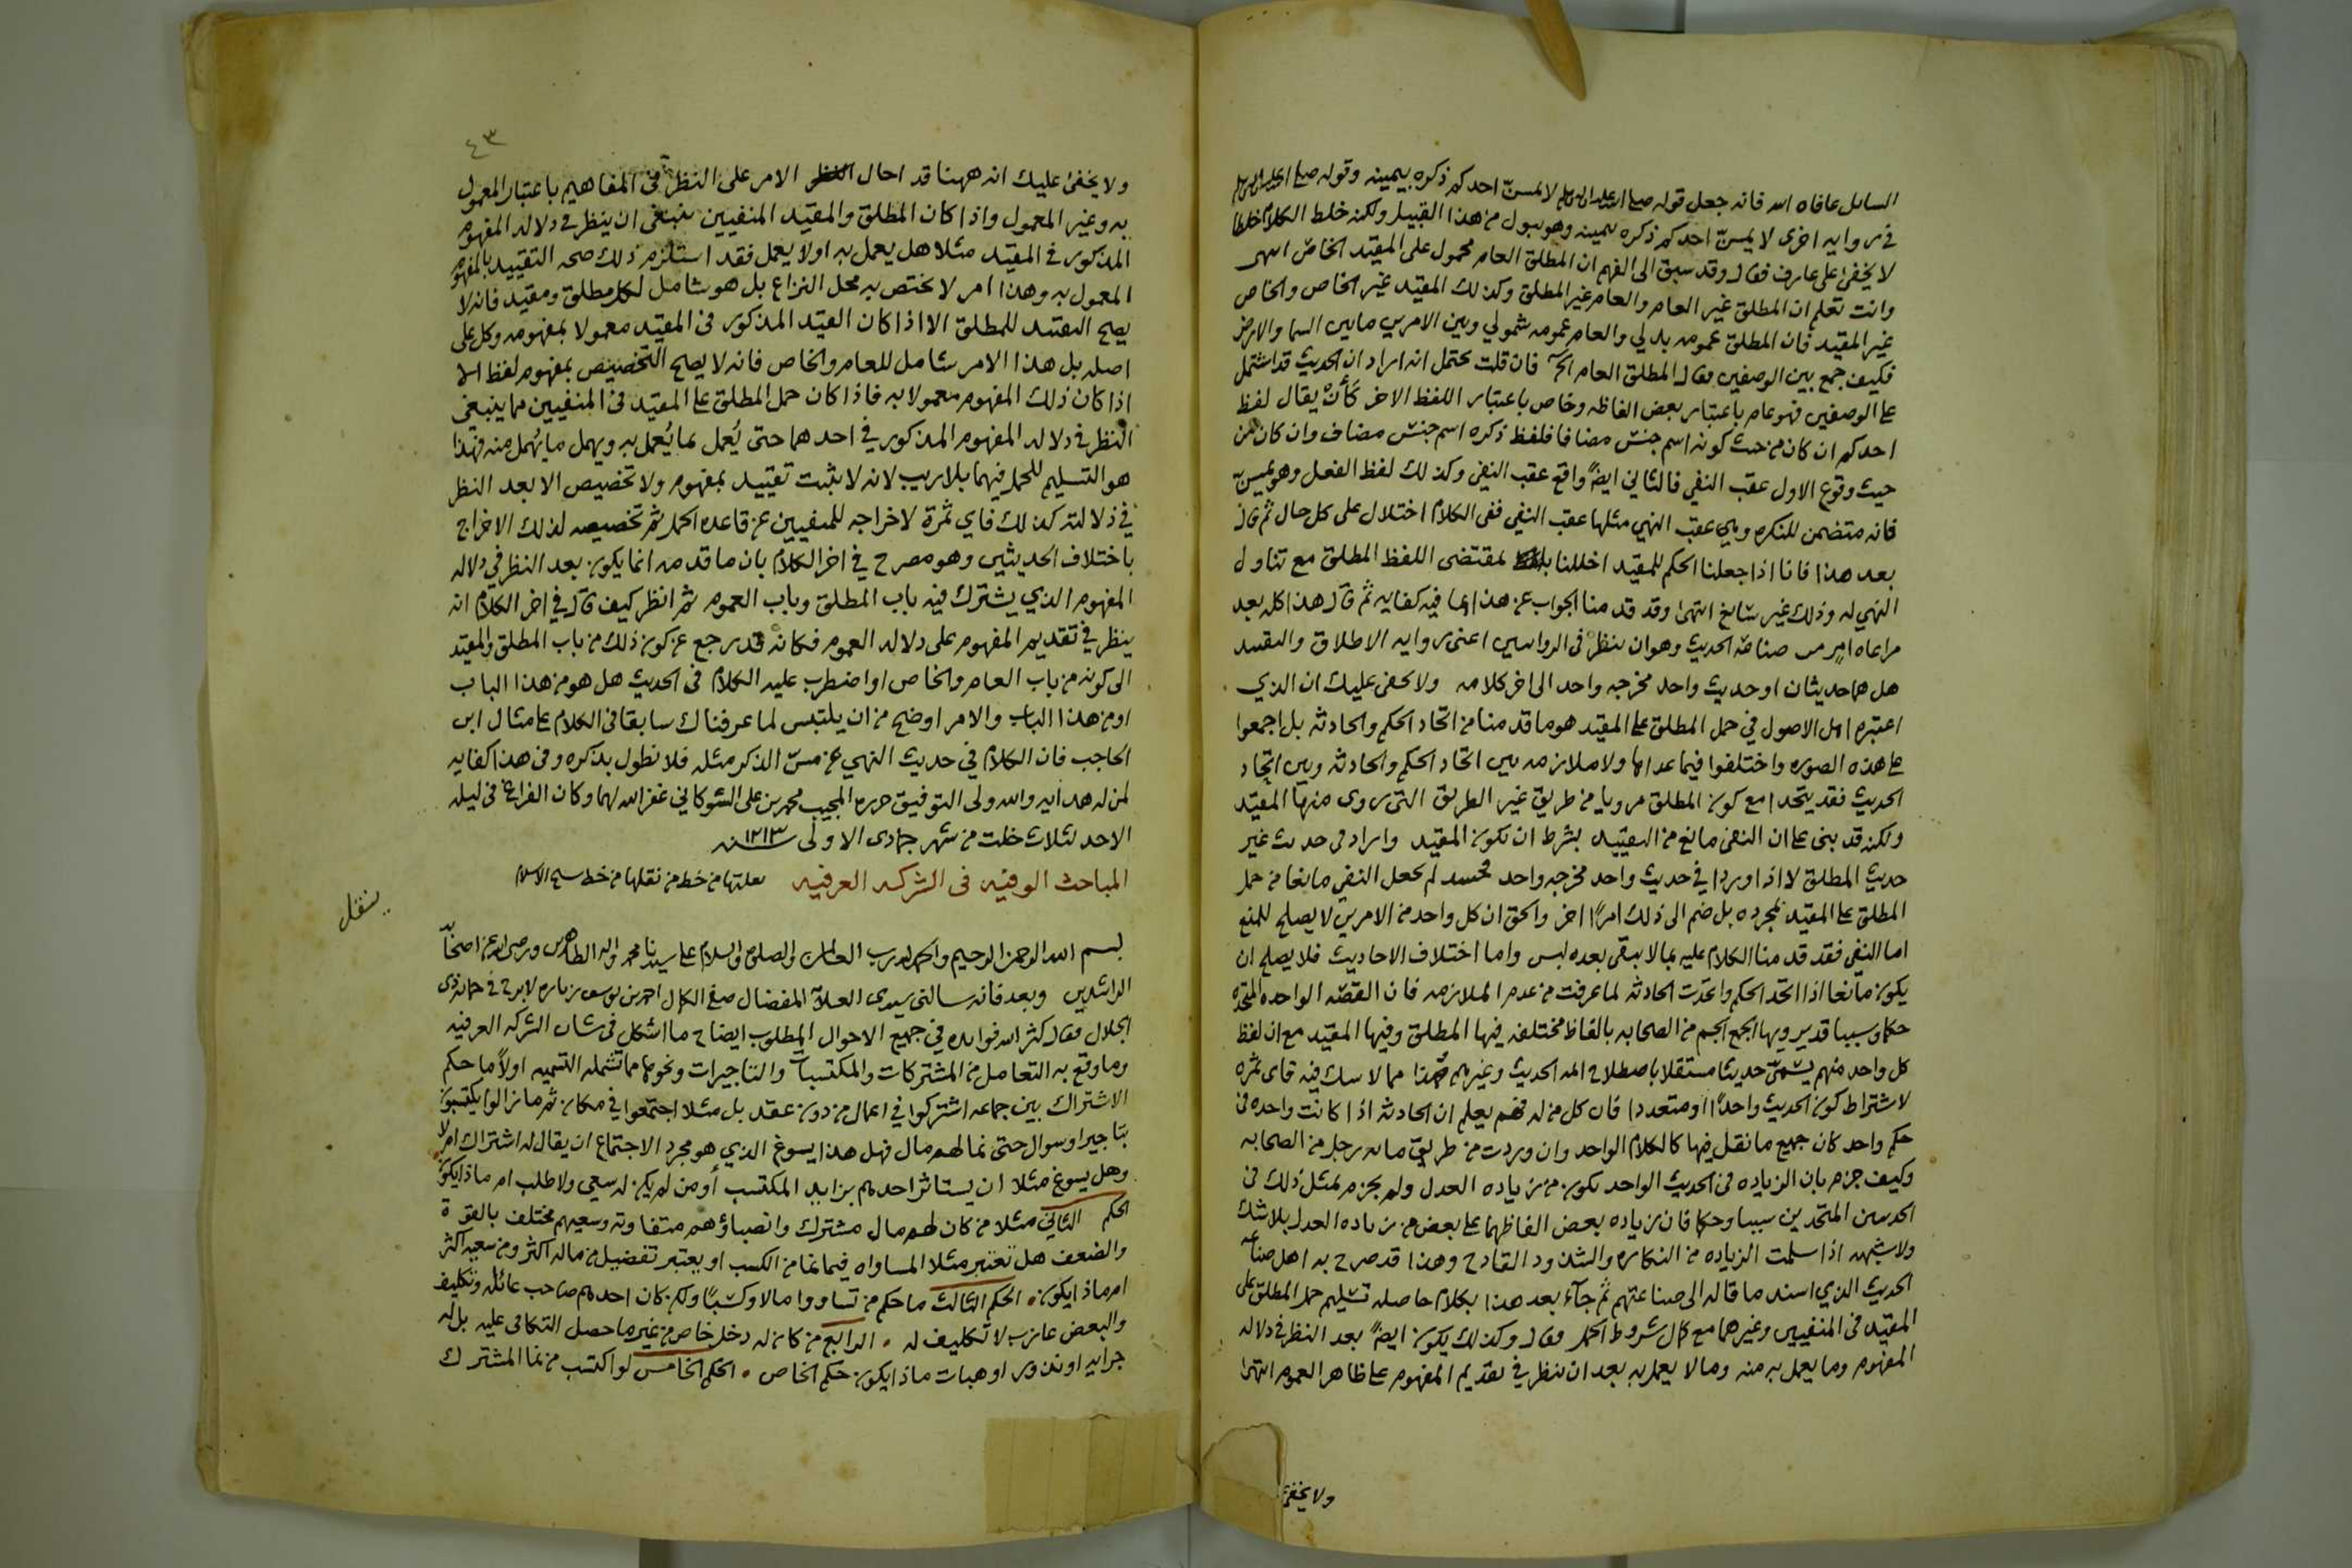 السائل عافاه الله فانه جعل قوله صلى الله عليه واله وسلم لا يمسنّ احدكم ذكره بيمينه وقوله صلى الله عليه واله وسلم
في روايه اخرى لا يمسنّ احدكم ذكره بيمينه وهو يبول من هذا القبيل ولكنه خلط الكلام خلطا
لا يخفى على عارف فقال وقد سبق الى الفهم ان المطلق العام محمول على المقيد الخاص انتهى
وانت تعلم ان المطلق غير العام والعام غير المطلق وكذلك المقيد غير الخاص والخاص
غير المقيد فان المطلق عمومه بدلي والعام عمومه شمولي وبين الامرين مابين السما والارض
فكيف جمع بين الوصفين فقال المطلق العام الخ فان قلت يحتمل انه اراد ان الحديث قد اشتمل
على الوصفين فهو عام باعتبار بعض الفاظه وخاص باعتبار اللفظ الاخر كأنْ يقال لفظ
احدكم ان كان من حيث كونه اسم جنس مضافا فلفظ ذكره اسم جنس مضاف وان كان من
حيث وقوع الاول عقب النفي فالثاني ايضًا واقع عقب النفي وكذلك لفظ الفعل وهو يمسنّ
فانه متضمن للنكره وهي عقب النهي مثلها عقب النفي ففي الكلام اختلال على كل حال ثم قال
بعد هذا فانا اذا جعلنا الحكم للمقيد اخللنا بمقتضى اللفظ المطلق مع تناول
النهي له وذلك غير سائغ انتهى وقد قدمنا الجواب عن هذا بما فيه كفايه ثم قال هذا كله بعد
مراعاه امر من صناعة الحديث وهو ان ينظر في الروايتين اعنى روايه الاطلاق والتقييد
هل هما حديثان او حديث واحد مخرجه واحد الى اخر كلامه ولا يخفى عليك ان الذي
اعتبره اهل الاصول في حمل المطلق على المقيد هو ما قدمنا من اتحاد الحكم والحادثه بل اجمعوا
على هذه الصوره واختلفوا فيما عداها ولا ملازمه بين اتحاد الحكم والحادثه وبين اتحاد
الحديث فقد يتحدا مع كون المطلق مرويا من طريق غير الطريق التى روى منها المقيد
ولكنه قد بنى على ان النفي مانع من التقييد بشرط ان يكون المقيد واراد في حديث غير
حديث المطلق لا اذا وردا في حديث واحد مخرجه واحد فحينئذ لم يجعل النفي مانعا من حمل
المطلق على المقيد بمجرده بل ضم الى ذلك امرًا اخر والحق ان كل واحد من الامرين لا يصلح للمنع
اما النفي فقد قدمنا الكلام عليه بما لا يبقى بعده لبس واما اختلاف الاحاديث فلا يصلح ان
يكون مانعا اذا اتحد الحكم واتحدت الحادثه لما عرفت من عدم الملازمه فان القصّه الواحده المتحده
حكما وسببا قد يرويها الجمع الجم من الصحابه بالفاظ مختلفه فيها المطلق وفيها المقيد مع ان لفظ
كل واحد منهم يسمّى حديثا مستقلا باصطلاح اهل الحديث وغيرهم وهذا مما لا شك فيه فاى ثمره
لاشتراط كون الحديث واحدًا او متعددا فان كل من له فهم يعلم ان الحادثه اذا كانت واحده في
حكم واحد كان جميع ما نقل فيها كالكلام الواحد وان وردت من طريق مايه رجل من الصحابه
وكيف جزم بان الزياده في الحديث الواحد تكون من زياده العدل ولم يجزم بمثل ذلك في
الحديثين المتحدين سببا وحكما فان زياده بعض الفاظهما على بعض من زياده العدل بلا شك
ولا شبهه اذا سلمت الزياده من النكاره والشذوذ القادح وهذا قد صرح به اهل صناعه
الحديث الذي اسند ما قاله الى صناعتهم ثم جآء بعد هذا بكلام حاصله تسليم حمل المطلق على
المقيد في المنفيين وغيرهما مع كمال شروط الحمل فقال وكذلك يكون ايضًا بعد النظر في دلاله
المفهوم وما يعمل به منه وما لا يعمل به بعد ان ينظر في تقديم المفهوم على ظاهر العموم انتهى
ولا يخفى
٤٣
ولا يخفى عليك انه ههنا قد احال الامر على النظر في المفاهيم باعتبار المعمول
به وغير المعمول واذا كان المطلق والمقيد المنفيين ينبغي ان ينظر في دلاله المفهوم
المذكور في المقيد مثلا هل يعمل به او لا يعمل فقد استلزم ذلك صحه التقييد بالمفهوم
المعمول به وهذا امر لا يختص به محل النزاع بل هو شامل لكل مطلق ومقيد فانه لا
يصح التقييد للمطلق الا اذا كان القيد المذكور في المقيد معمولا بمفهومه وكل على
اصله بل هذا الامر شامل للعام والخاص فانه لا يصلح التخصيص بمفهوم لفظ الا
اذا كان ذلك المفهوم معمولا به فاذا كان حمل المطلق على المقيد في المنفيين مما ينبغي
النظر في دلاله المفهوم المذكور في احدهما حتى يُعمل بما يُعمل به ويهمل ما يُهمل منه فهذا
هو التسليم للحمل فيهما بلا ريب لانه لا يثبت تقييد بمفهوم ولا تخصيص الا بعد النظر
في دلالته كذلك فاي ثمرة لاخراجه للمنفيين عن قاعده الحمل ثم تخصيصه لذلك الاخراج
باختلاف الحديثين وهو مصرح في اخر الكلام بان ما قدمه انما يكون بعد النظر في دلاله
المفهوم الذي يشترك فيه باب المطلق وباب العموم ثم انظر كيف قال في اخر الكلام انه
ينظر في تقديم المفهوم على دلاله العموم فكانه قد رجع عن كون ذلك من باب المطلق والمقيد
الى كونه من باب العام والخاص او اضطرب عليه الكلام في الحديث هل هو من هذا الباب
او من هذا الباب والامر اوضح من ان يلتبس لما عرفناك سابقا في الكلام على مثال ابن
الحاجب فان الكلام في حديث النهي عن مسّ الذكر مثله فلا نطول بذكره وفي هذا كفايه
لمن له هدايه والله ولى التوفيق حرره المجيب محمد بن على الشوكاني غفر الله لهما وكان الفراغ في ليله
الاحد لثلاث خلت من شهر جمادى الاولى سنه ١٢١٣
المباحث الوفيه في الشركه العرفيه نقلتها من خط من نقلها من خط شيخ الاسلام
ينقل
بسم الله الرحمن الرحيم والحمد لله رب العالمين والصلوه والسلام على سيدنا محمد واله الطاهرين ورضى الله عن اصحابه
الراشدين وبعد فانه سالنى سيدى العلامة المفضال صفي الكمال احمد بن يوسف زباره لا برح في حمايه ذى
الجلال فقال كثر الله فوايده في جميع الاحوال المطلوب ايضاح ما اشكل في شان الشركه العرفيه
وما وقع به التعامل من المشتركات والمكتسبات والتاجيرات ونحوها مما تشمله التسميه اولاً ما حكم
الاشتراك بين جماعه اشتركوا في اعمال من دون عقد بل مثلا اجتمعوا في مكان ثم ما زالوا يكتسبون
بتاجير او سوال حتى نما لهم مال فهل هذا يسوغ الذي هو مجرد الاجتماع ان يقال له اشتراك ام لا
وهل يسوغ مثلا ان يستاثر احدهم بزايد المكتسب أو من لم يكن له سعي ولا طلب ام ماذا يكون
الحكم الثاني مثلا من كان لهم مال مشترك وانصباؤهم متفاوته وسعيهم مختلف بالقوة
والضعف هل تعتبر مثلا المساواه فيما نما من الكسب او يعتبر تفضيل من ماله اكثر ومن سعيه اكثر
ام ماذا يكون . الحكم الثالث ما حكم من تساووا مالا وكسبًا ولكن كان احدهم صاحب عائله وتكليف
والبعض عازب لا تكليف له . الرابع من كان له دخل خاص من غير ما حصل التكافى عليه بل له
جرايه او نذور او هبات ماذا يكون حكم الخاص . الحكم الخامس لو اكتسب من نما المشترك